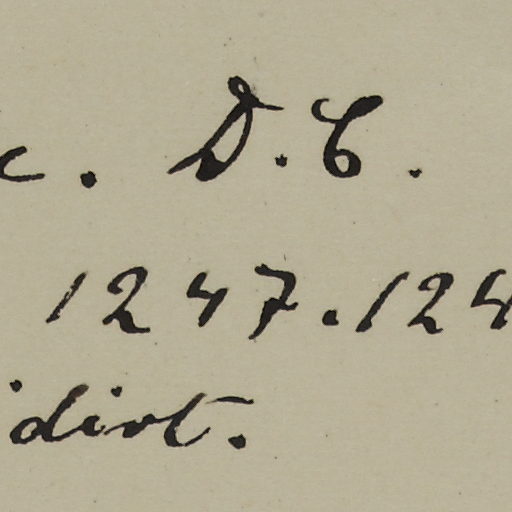 c. D. C.
1247.124
idiot.